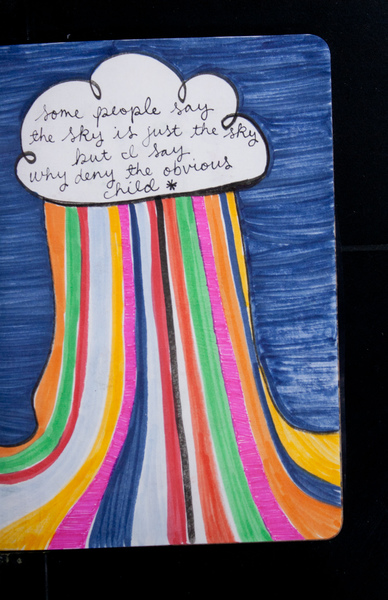 some people say
the sky is just the sky
but I say
why deny the obvious
child *